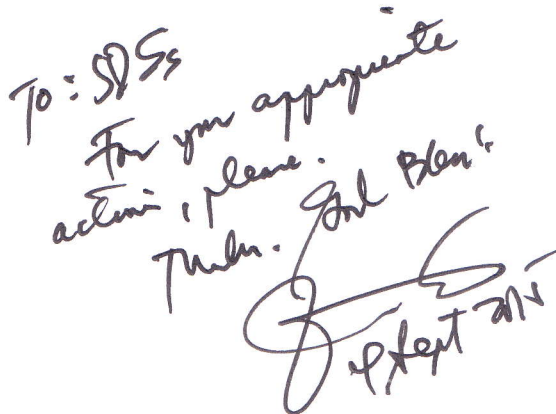 To: SDSs
For your appropriate
action, please.
Thanks. God Bless!
Sept 2015